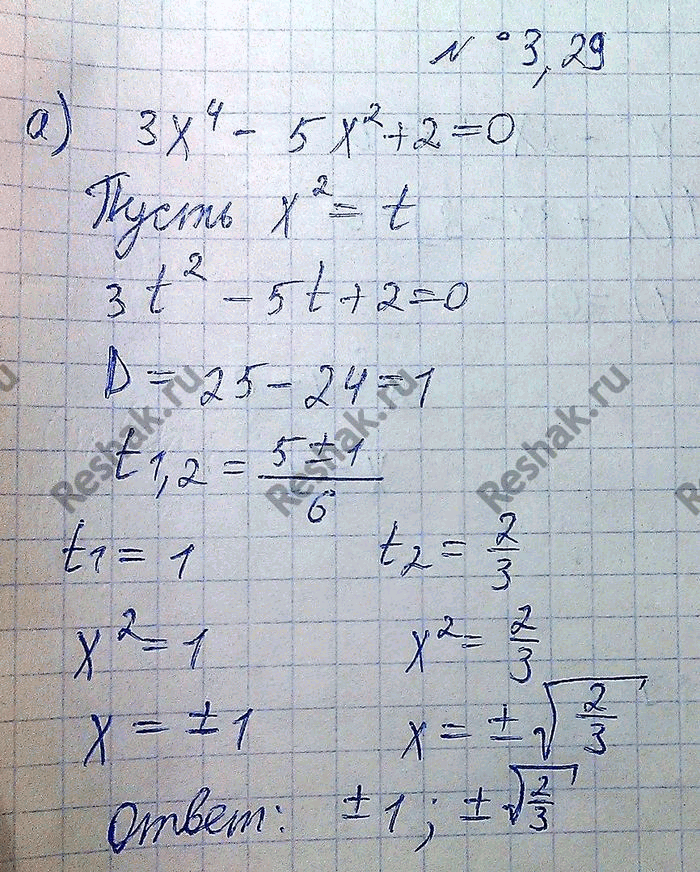 N°3,29
а) 3x⁴ - 5x² + 2 = 0
Пусть x² = t
3t² - 5t + 2 = 0
D = 25 - 24 = 1
t1,2 = (5 ± 1)/6
t1 = 1 t2 = 2/3
x² = 1 x² = 2/3
x = ±1 x = ±√(2/3)
Ответ: ±1; ±√(2/3)
Reshak.ru
Reshak.ru
Reshak.ru